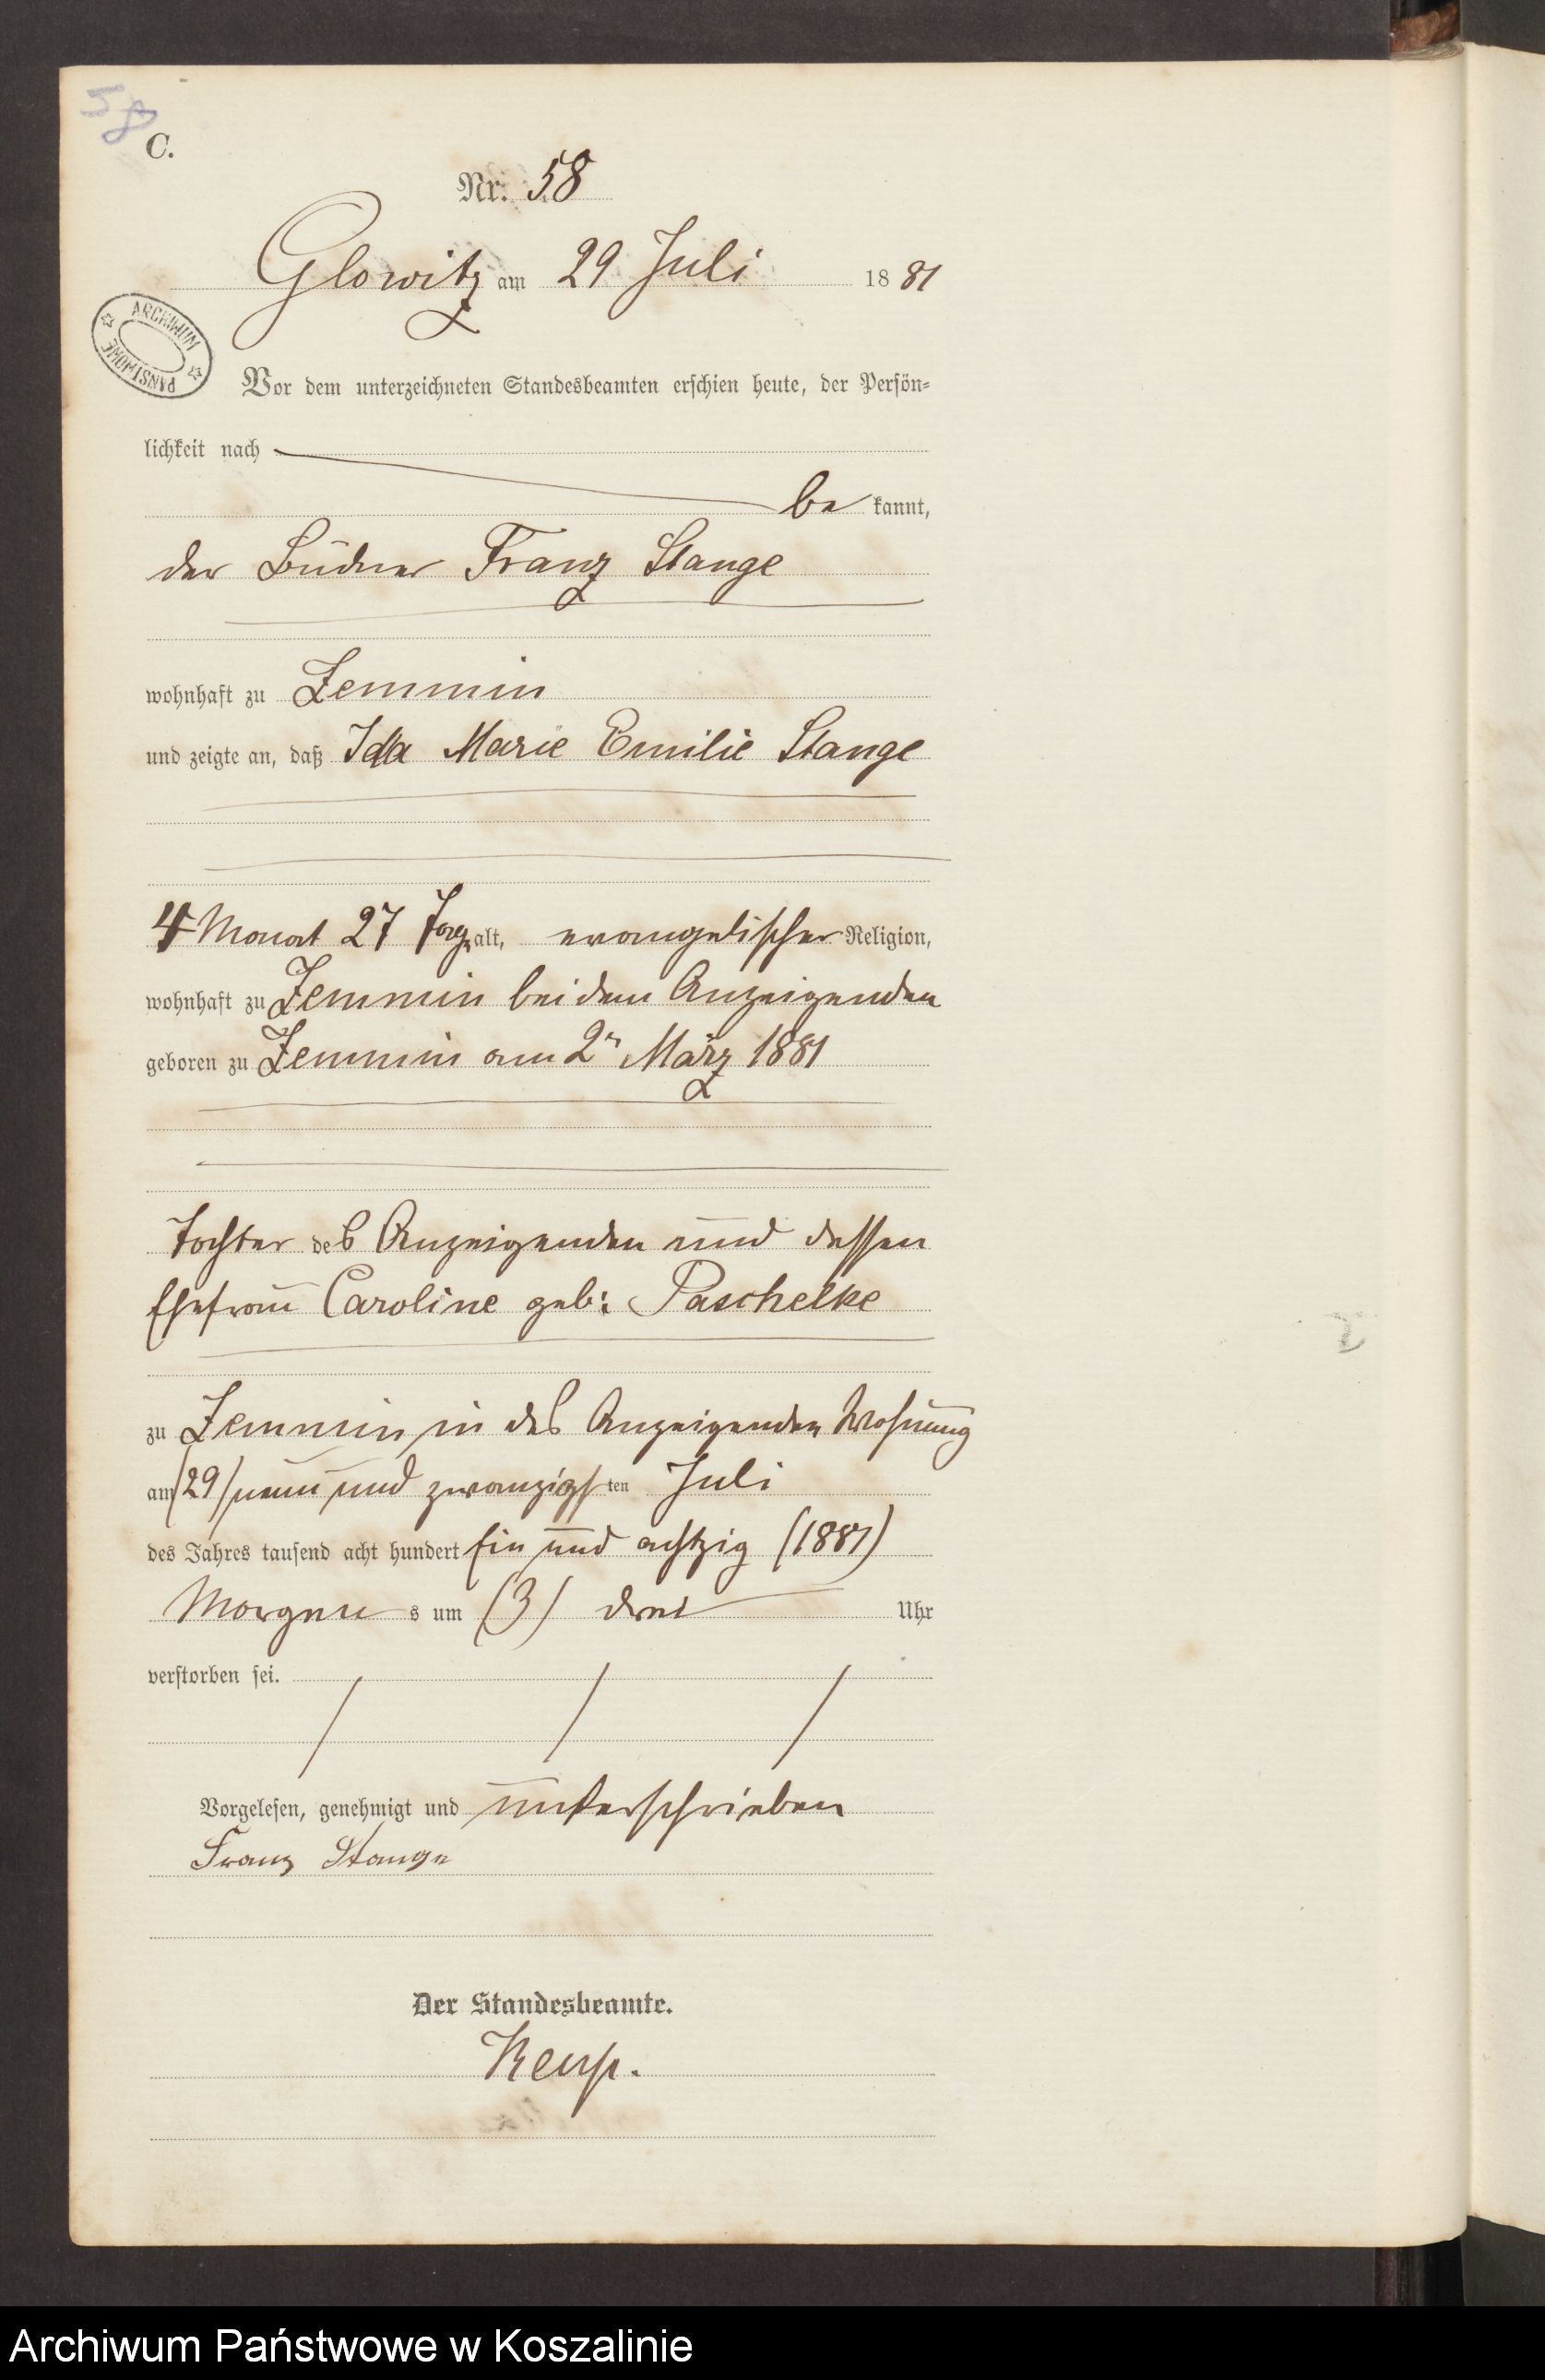 58
C.
Nr. 58
Glowitz am 29 Juli 1881
ARCHIWUM PAŃSTWOWE
Vor dem unterzeichneten Standesbeamten erschien heute, der Persön-
lichkeit nach
be kannt,
der Büdner Franz Stange
wohnhaft zu Zemmin
und zeigte an, daß Ida Marie Emilie Stange
4 Monat 27 Tag alt, evangelischer Religion,
wohnhaft zu Zemmin bei dem Anzeigenden
geboren zu Zemmin am 2n März 1881
Tochter des Anzeigenden und dessen
Ehefrau Caroline geb: Paschelke
zu Zemmin in des Anzeigenden Wohnung
am (29) neun und zwanzigsten Juli
des Jahres tausend acht hundert ein und achtzig (1881)
Morgens um (3) drei Uhr
verstorben sei.
Vorgelesen, genehmigt und unterschrieben
Franz Stange
Der Standesbeamte.
Archiwum Państwowe w Koszalinie